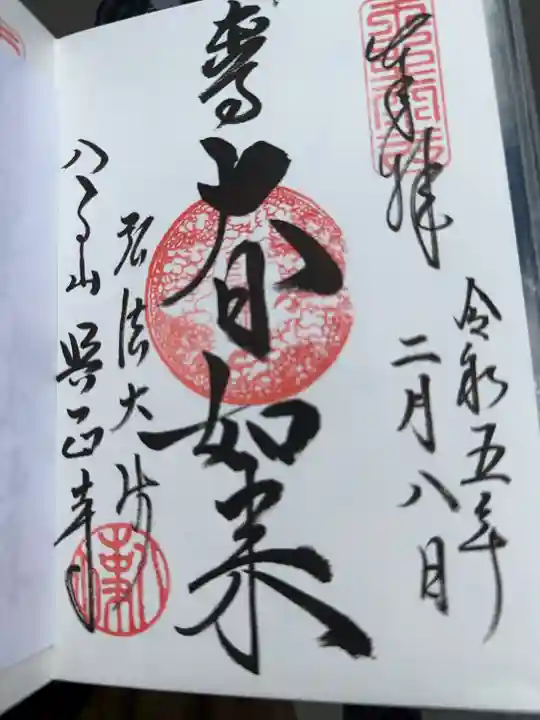 奉拝
令和五年
二月八日
大日如来
弘法大師
八事山 興正寺